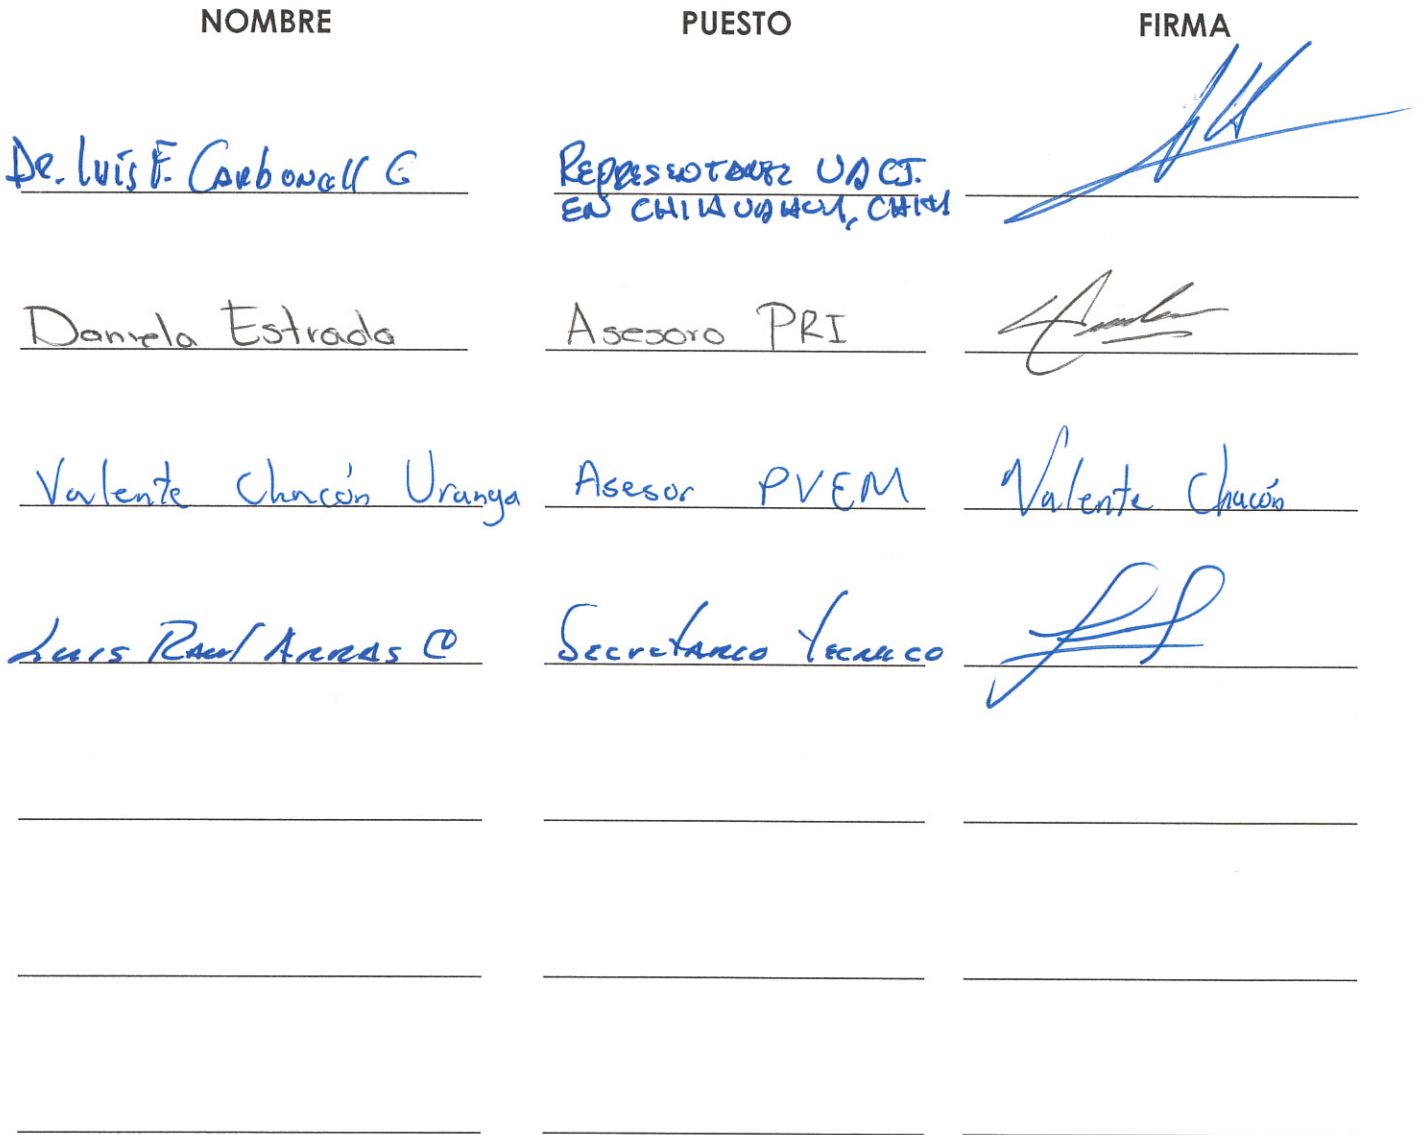 NOMBRE PUESTO FIRMA
Dr. Luís F. Carbonell G Representante UACJ.
EN CHIHUAHUA, CHIH
Daniela Estrada Asesora PRI
Valente Chacón Uranga Asesor PVEM Valente Chacón
Luis Raul Arras C Secretario Tecnico